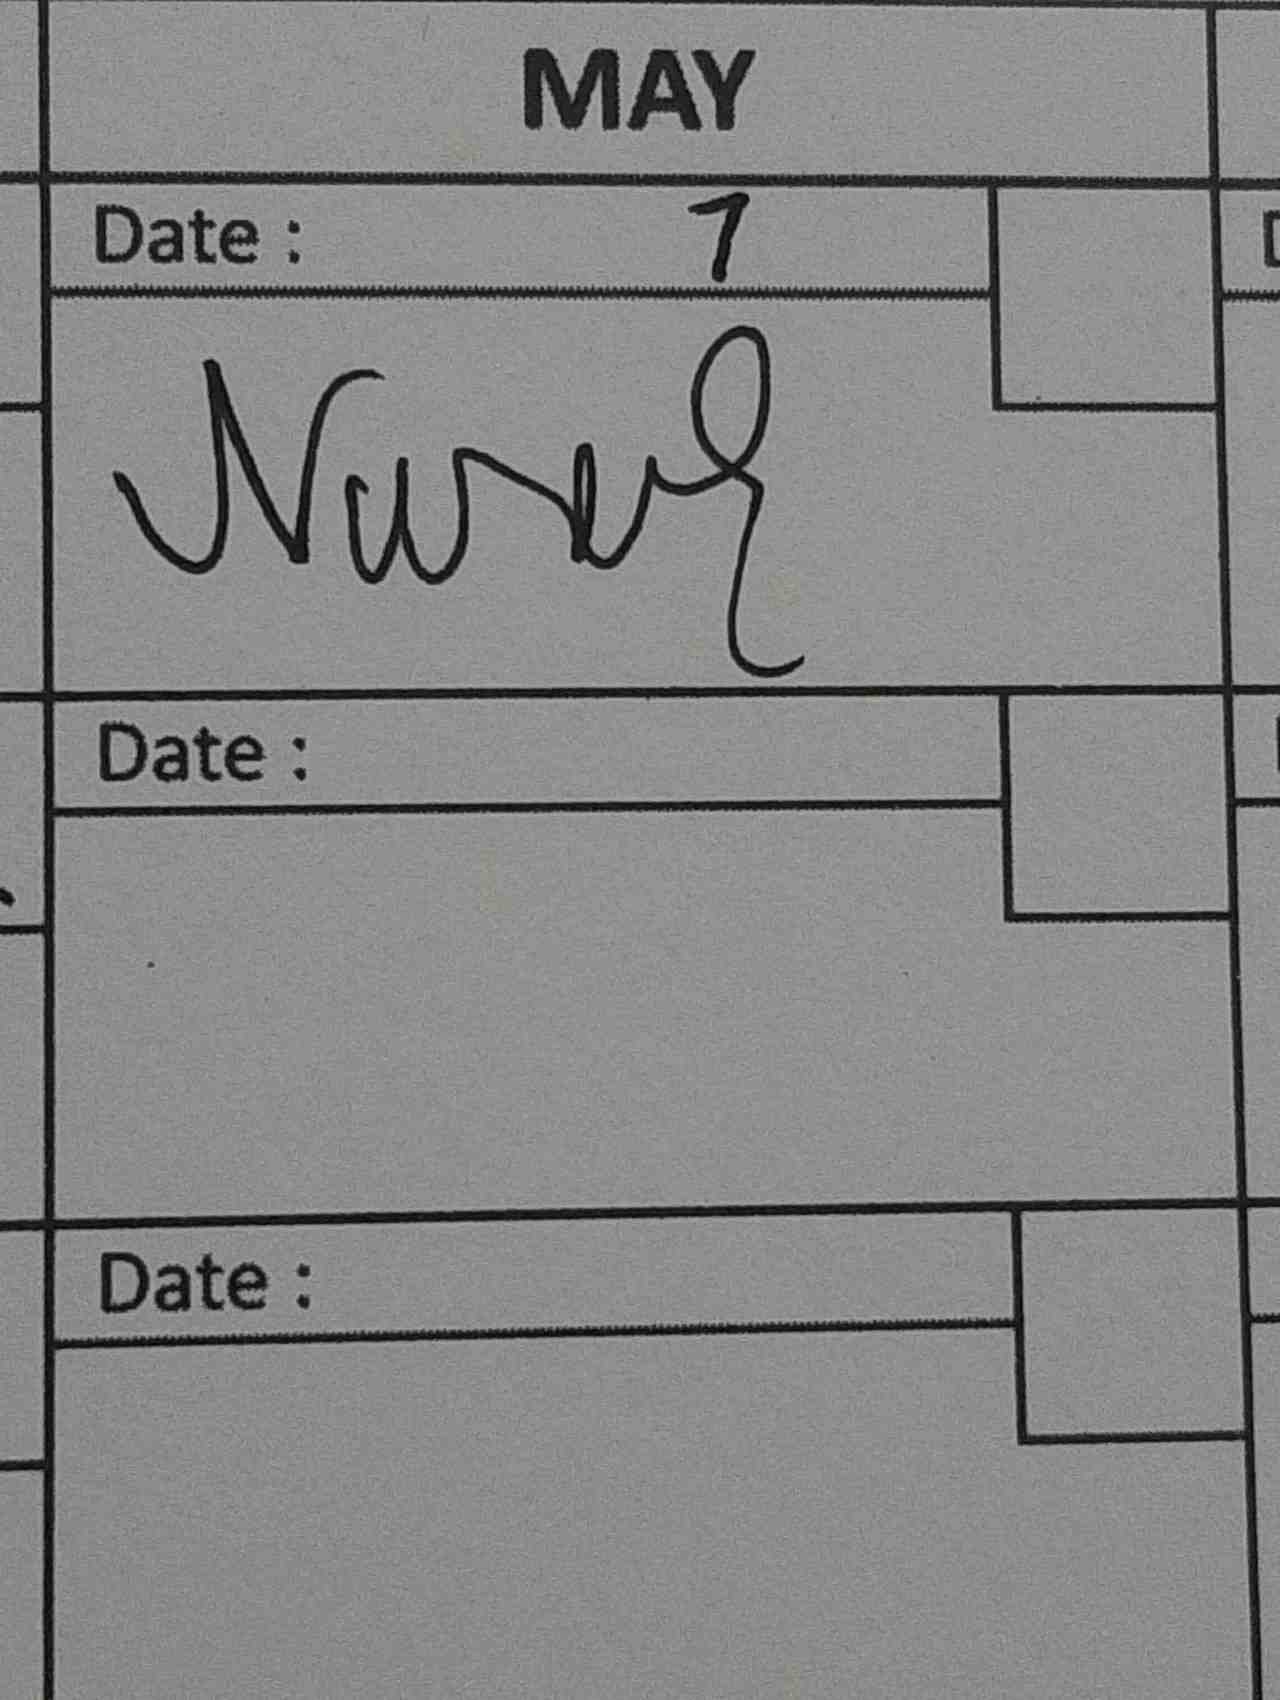 MAY
Date : 7
Date :
Date :